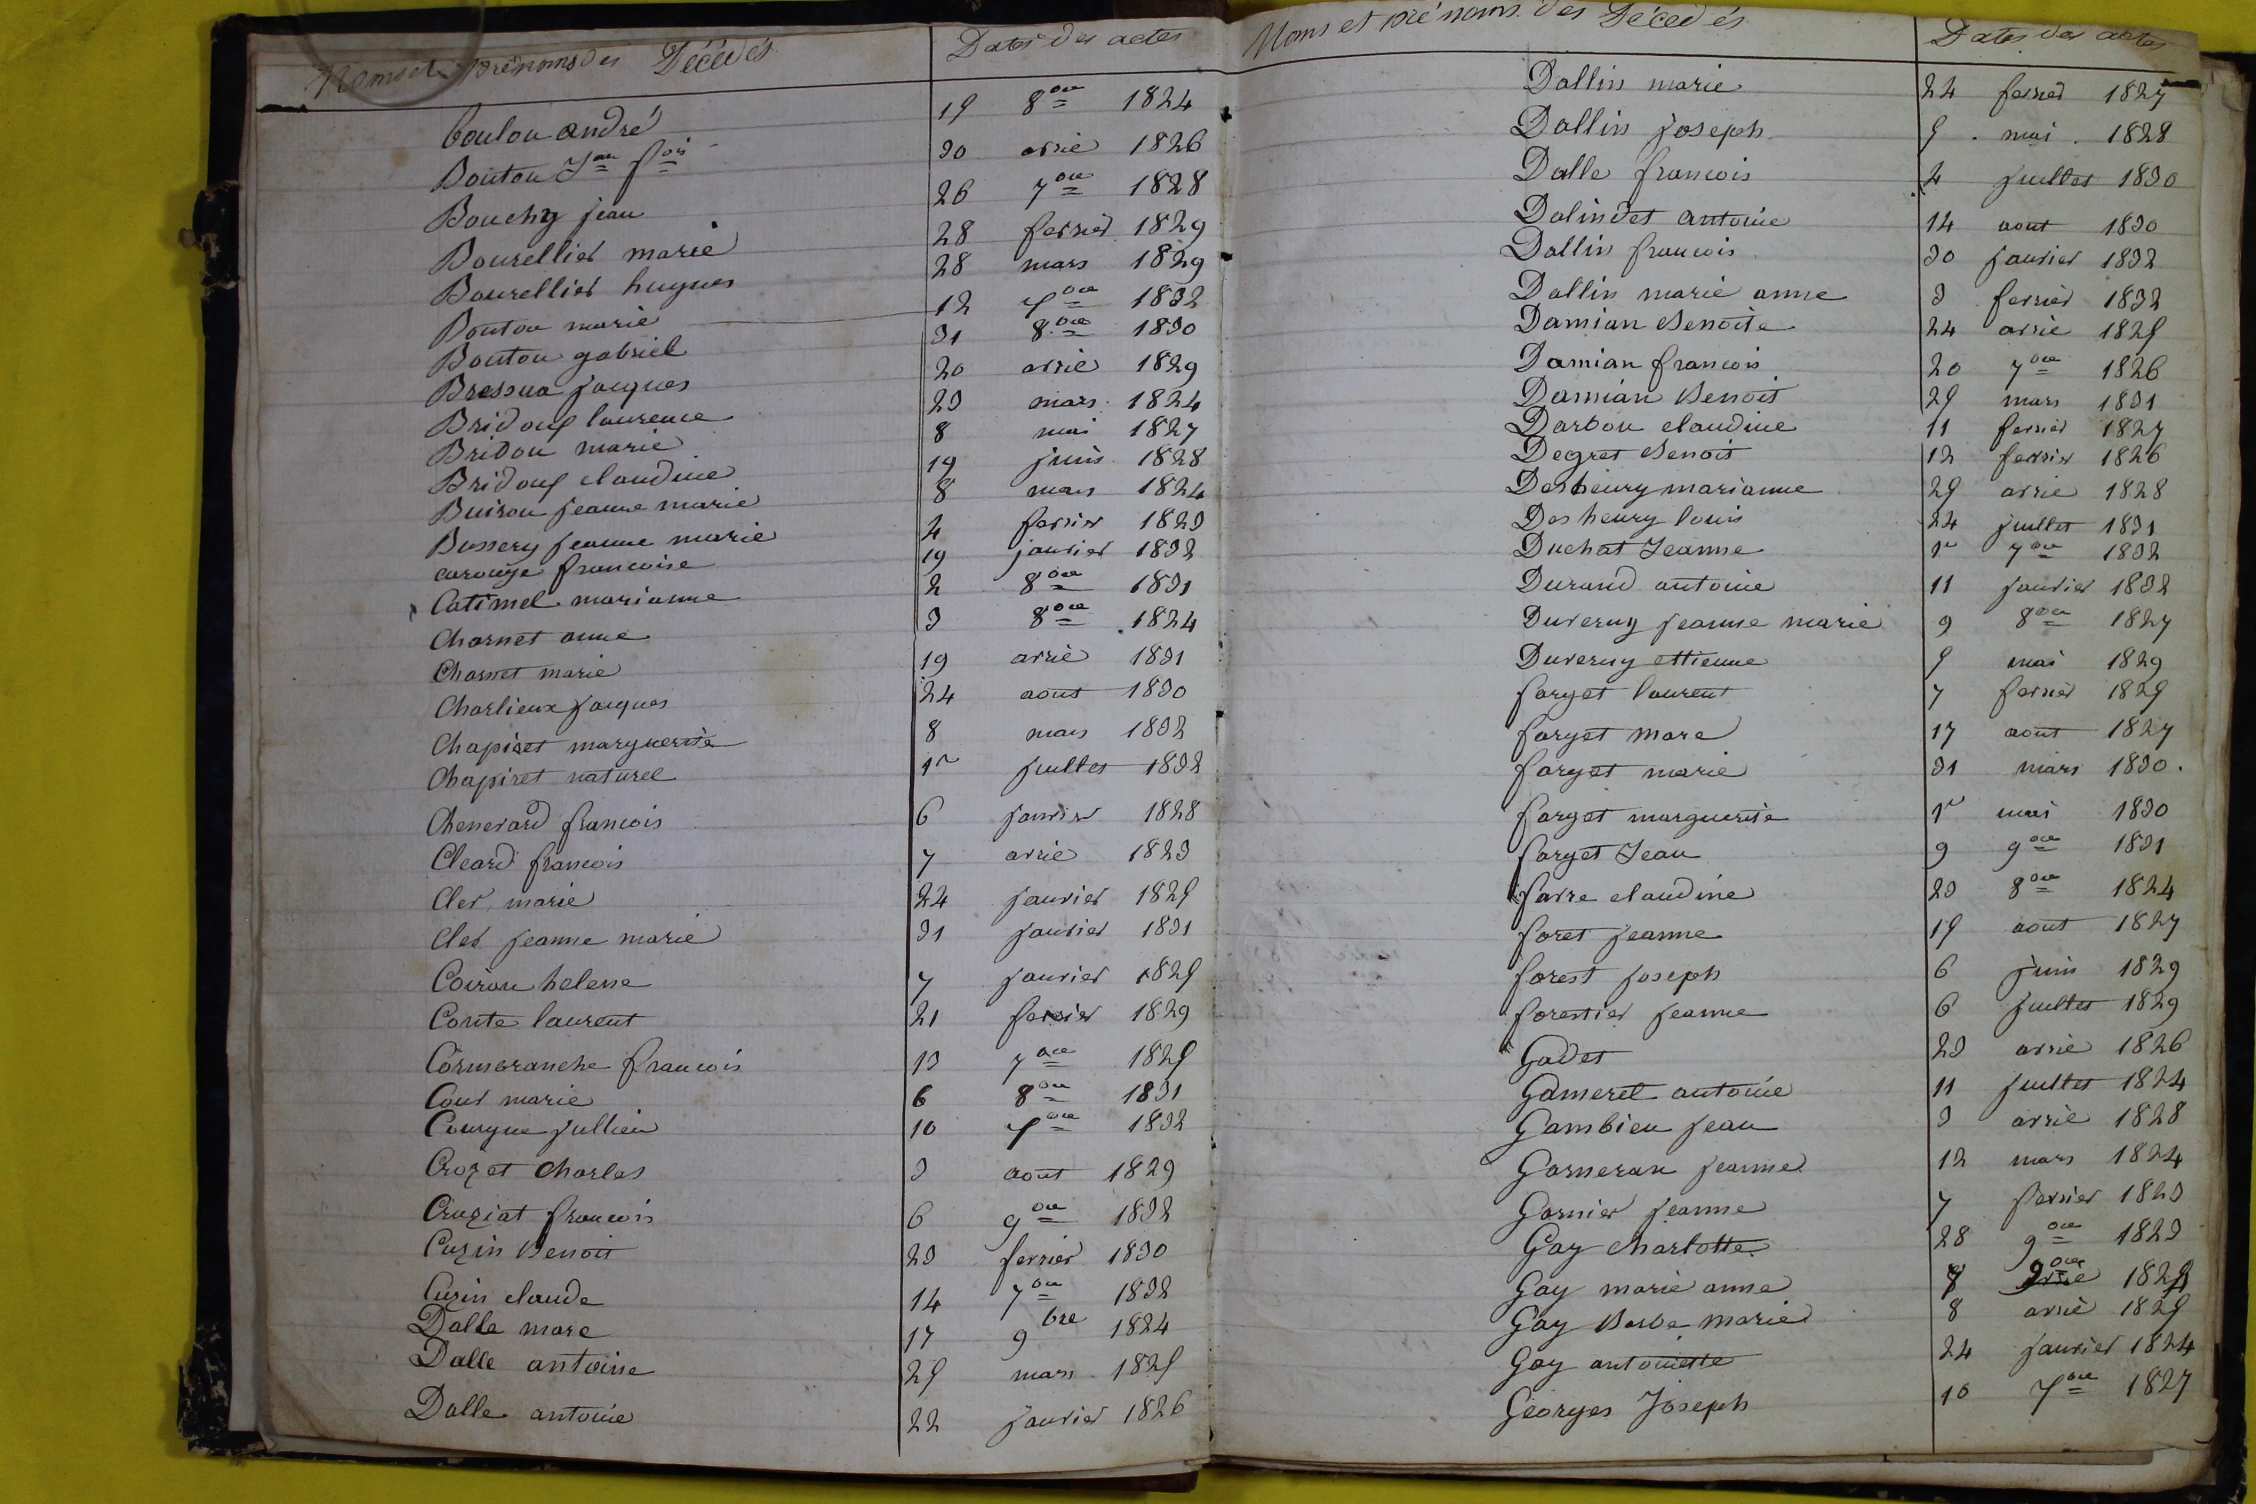 Noms et prénoms des Décédés Dates des actes
Boulou andré 15 8bre 1824
Bouton Jean fois 30 avril 1826
Bouchy jean 26 7bre 1828
Bourellier marie 28 fevrier 1829
Bourellier hugues 28 mars 1829
Bouton marie 12 xbre 1832
Bouton gabriel 31 8bre 1830
Bressua jacques 20 avril 1829
Bridouf laurence 23 mars 1824
Bridon marie 8 mai 1827
Bridouf claudine 19 juin 1828
Buison jeanne marie 8 mars 1824
Bussery jeanne marie 4 fevrier 1823
carouge francoise 19 janvier 1832
Catimel marianne 2 8bre 1831
Charnet anne 3 8bre 1824
Charnet marie 19 avril 1831
Charlieux jacques 24 aout 1830
Chapiset marguerite 8 mars 1832
Chapiset naturel 1er juillet 1832
Chenevard francois 6 janvier 1828
Cleard francois 7 avril 1823
Cler marie 24 janvier 1825
Cler jeanne marie 31 janvier 1831
Coiron helene 7 janvier 1825
Conte laurent 21 fevrier 1829
Cormoranche francois 13 7bre 1825
Cour marie 6 8bre 1831
Courgne jullien 10 xbre 1832
Crozet charles 3 aout 1829
Cruziat francois 6 9bre 1832
Cuzin Benoit 23 fevrier 1830
Cusin claude 14 7bre 1832
Dalle marc 17 9bre 1824
Dalle antoine 25 mars 1825
Dalle antoine 22 janvier 1826
Noms et prénoms des Décédés Dates des actes
Dallin marie 24 fevrier 1827
Dallin joseph 5 mai 1828
Dalle francois 4 juillet 1830
Dalindet antoine 14 aout 1830
Dallin francois 30 janvier 1832
Dallin marie anne 3 fevrier 1832
Damian Benoite 24 avril 1825
Damian francois 20 7bre 1826
Damian Benoit 25 mars 1831
Darbon claudine 11 fevrier 1827
Degret Benoit 12 fevrier 1826
Desheury marianne 29 avril 1828
Desheury louis 24 juillet 1831
Duchat Jeanne 1er 7bre 1832
Durand antoine 11 janvier 1832
Duverny jeanne marie 9 8bre 1827
Duverny ettienne 5 mai 1829
farget laurent 7 fevrier 1825
farget marc 17 aout 1827
farget marie 31 mars 1830
farget marguerite 1er mai 1830
farget Jean 9 9bre 1831
farre claudine 23 8bre 1824
foret jeanne 15 aout 1827
forest joseph 6 juin 1829
forestier jeanne 6 juillet 1829
Gadet 23 avril 1826
Gamerel antoine 11 juillet 1824
Gambieu jean 3 avril 1828
Garneran jeanne 12 mars 1824
Garnier jeanne 7 fevrier 1823
Gay charlotte 28 9bre 1823
Gay marie anne 7 9bre 1824
Gay Barbe marie 8 avril 1825
Gay antoinette 24 janvier 1824
Georges Joseph 10 xbre 1827